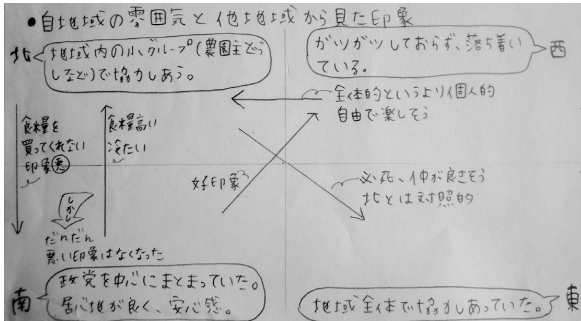 ●自地域の雰囲気と他地域から見た印象
北
地域内の小グループ(農園主どう
しなど)で協力しあう。
がツがツしておらず、落ち着い
ている。
西
全体的というより個人的
自由で楽しそう
食糧を
買ってくれない
印象悪
食糧高い
冷たい
好印象
必死、仲が良さそう
北とは対照的
しかし
だんだん
悪い印象はなくなった
南
政党を中心にまとまっていた。
居心地が良く、安心感。
地域全体で協力しあっていた。
東